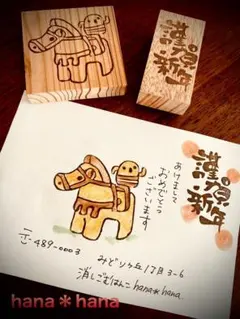 謹賀
新年
謹賀
新年
あけまして
おめでとう
ございます
〒489-0003
みどりヶ丘1丁目3-6
消しごむはんこhana*hana
hana*hana